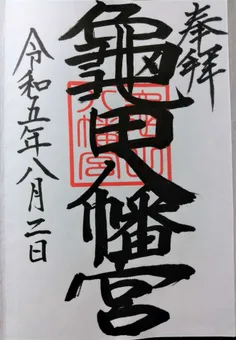 奉拝
龜甲八幡宮
令和五年八月二日